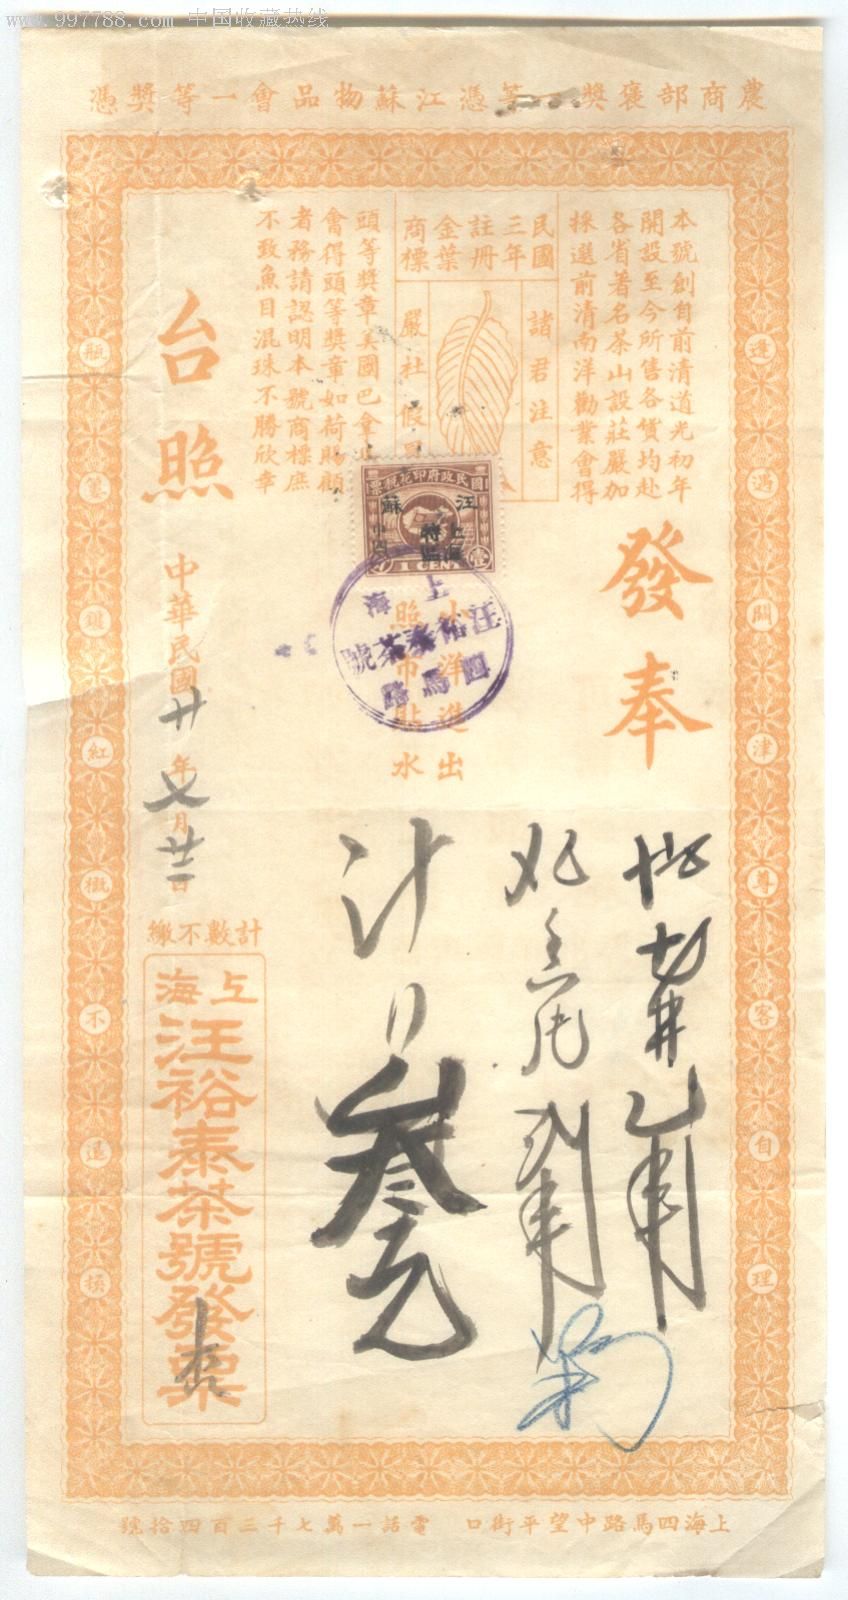 www.997788.com 中国收藏热线
農商部褒獎一等憑江蘇物品會一等獎憑
本號創自前清道光初年
開設至今所售各貨均赴
各省著名茶山設莊嚴加
採選前清南洋勸業會得
民國
三年
註冊
金葉
商標
諸君注意
嚴杜假冒
頭等獎章美國巴拿
會得頭等獎章如荷賜顧
者務請認明本號商標庶
不致魚目混珠不勝欣幸
台照
發奉
國民政府印花稅票
江蘇
上海
特區
壹
1 CENT
上海
汪裕泰茶號
四馬路
小洋進出
照市貼水
計
叁元
中華民國廿年七月廿二日
計數不繳
上海
汪裕泰茶號發票
遠遇關津尊客自理
瓶簍雖紅概不退換
上海四馬路中望平街口 電話一萬七千三百四拾號